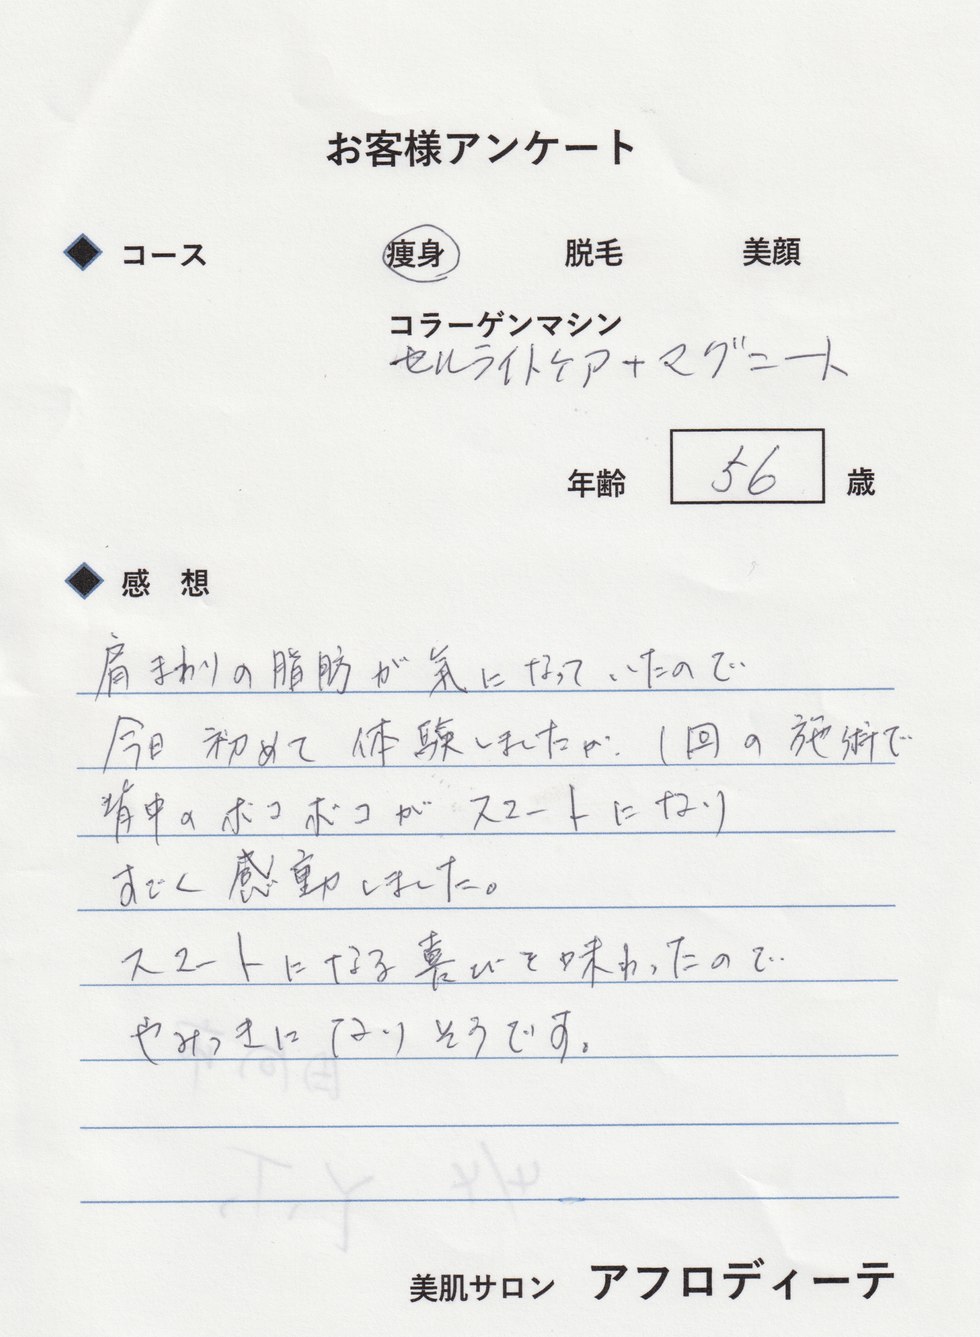 お客様アンケート
◆ コース 痩身 脱毛 美顔
コラーゲンマシン
セルライトケア+マグニート
年齢 56 歳
◆ 感 想
肩まわりの脂肪が気になっていたので
今日初めて体験しましたが、1回の施術で
背中のボコボコがスマートになり
すごく感動しました。
スマートになる喜びを味わったので
やみつきになりそうです。
4/4 Y.T
美肌サロン アフロディーテ